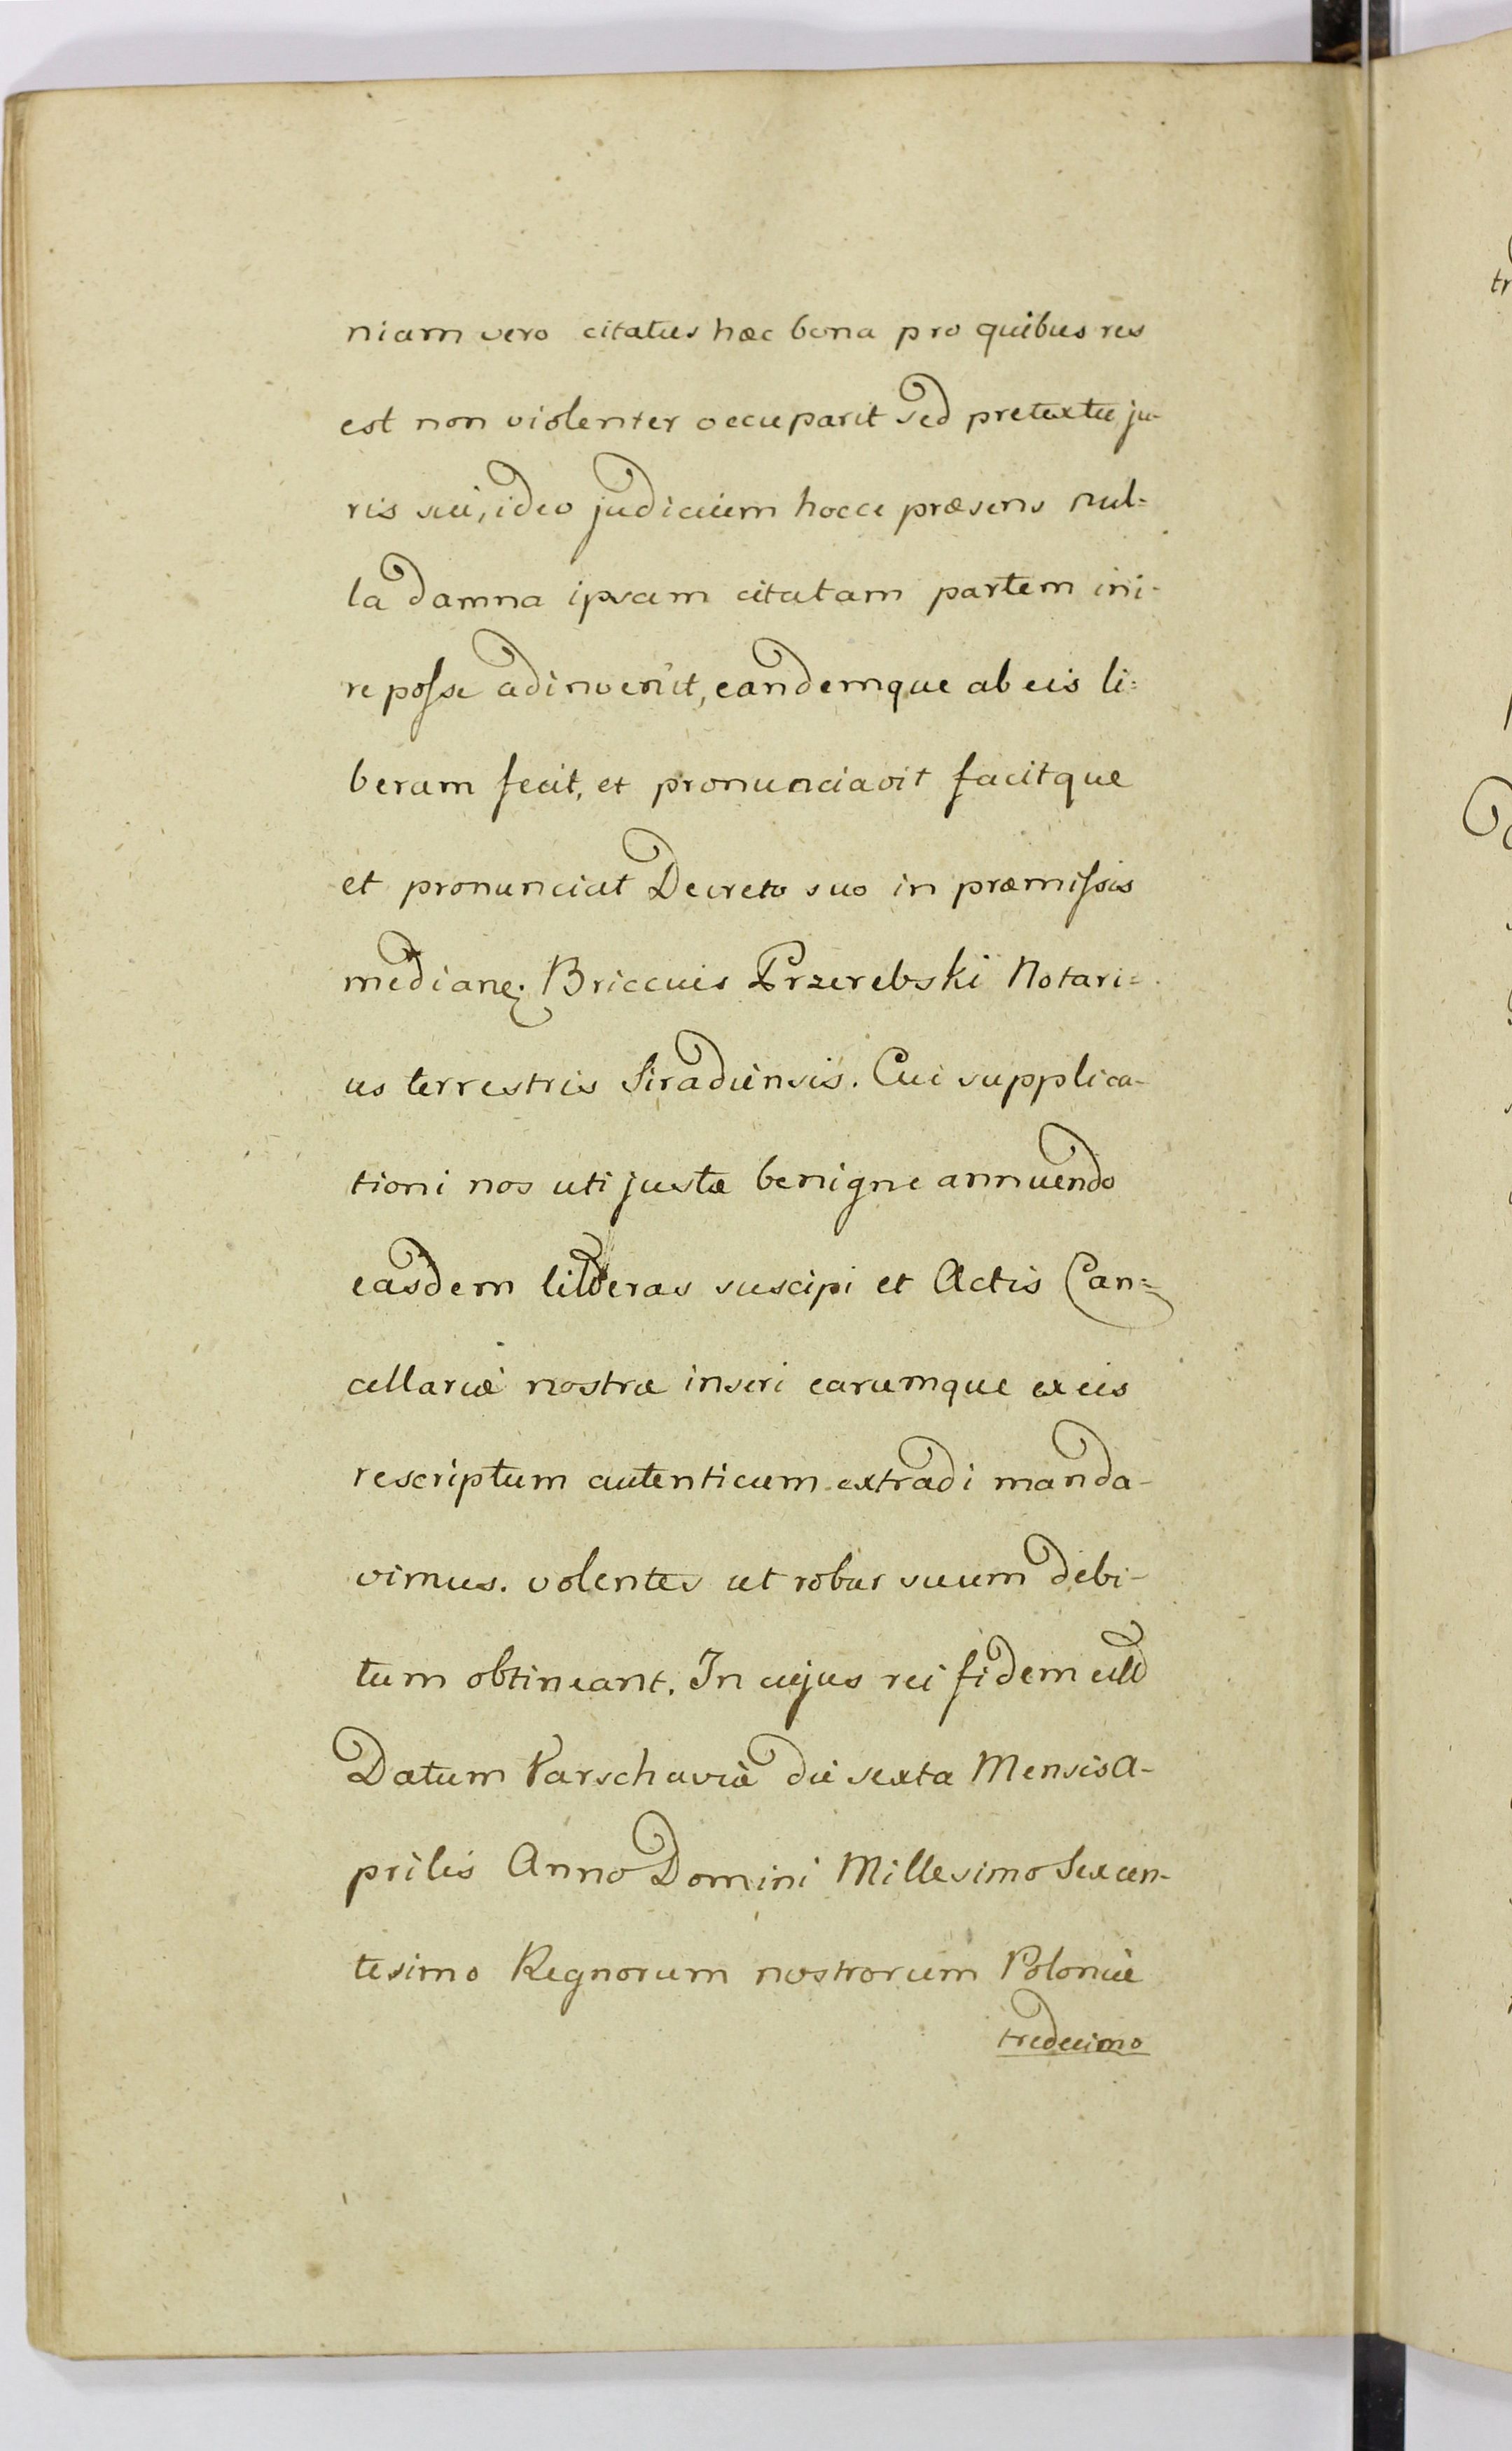 niam vero citatus hæc bona pro quibus res
est non violenter occuparit sed pretextu ju-
ris sui, ideo judicium hocce præsens nul=
la damna ipsam citatam partem ini-
re posse adinvenit, eandemque ab eis li=
beram fecit, et pronunciavit facitque
et pronunciat Decreto suo in præmissis
mediane. Briccius Przerebski Notari=
us terrestris Siradiensis. Cui supplica-
tioni nos uti justæ benigne annuendo
easdem litteras suscipi et Actis Can=
cellariæ nostræ inseri earumque ex eis
rescriptum autenticum extradi manda-
vimus. volentes ut robur suum debi-
tum obtineant. In cujus rei fidem
Datum Varschaviæ die sexta Mensis A-
prilis Anno Domini Millesimo Sexcen-
tesimo Regnorum nostrorum Poloniæ
tredecimo
tr